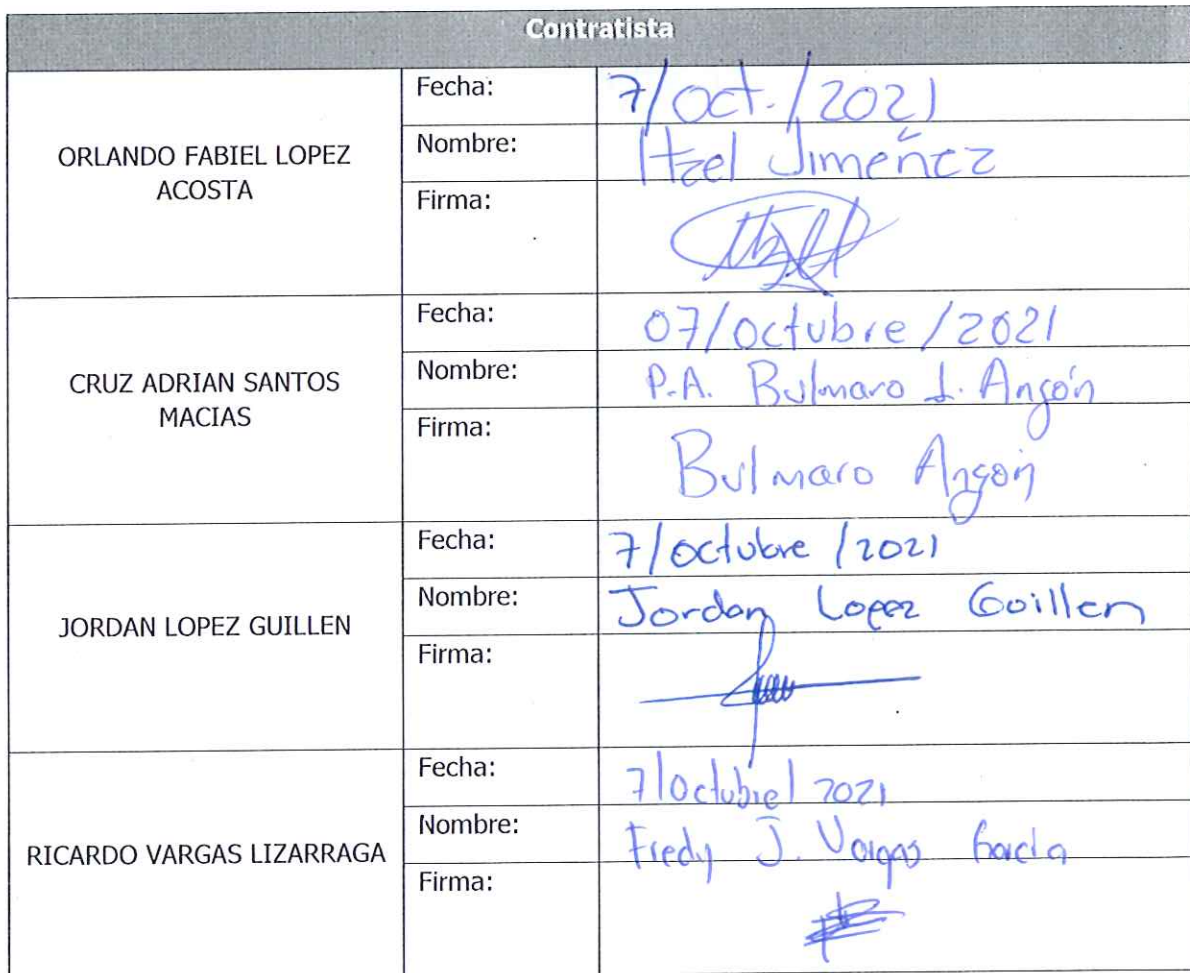 Contratista
ORLANDO FABIEL LOPEZ
ACOSTA
Fecha: 7/oct./2021
Nombre: Itzel Jiménez
Firma:
CRUZ ADRIAN SANTOS
MACIAS
Fecha: 07/octubre/2021
Nombre: P.A. Bulmaro J. Angón
Firma: Bulmaro Angón
JORDAN LOPEZ GUILLEN
Fecha: 7/octubre/2021
Nombre: Jordan Lopez Guillen
Firma:
RICARDO VARGAS LIZARRAGA
Fecha: 7/Octubre/2021
Nombre: Fredy J. Vargas García
Firma: